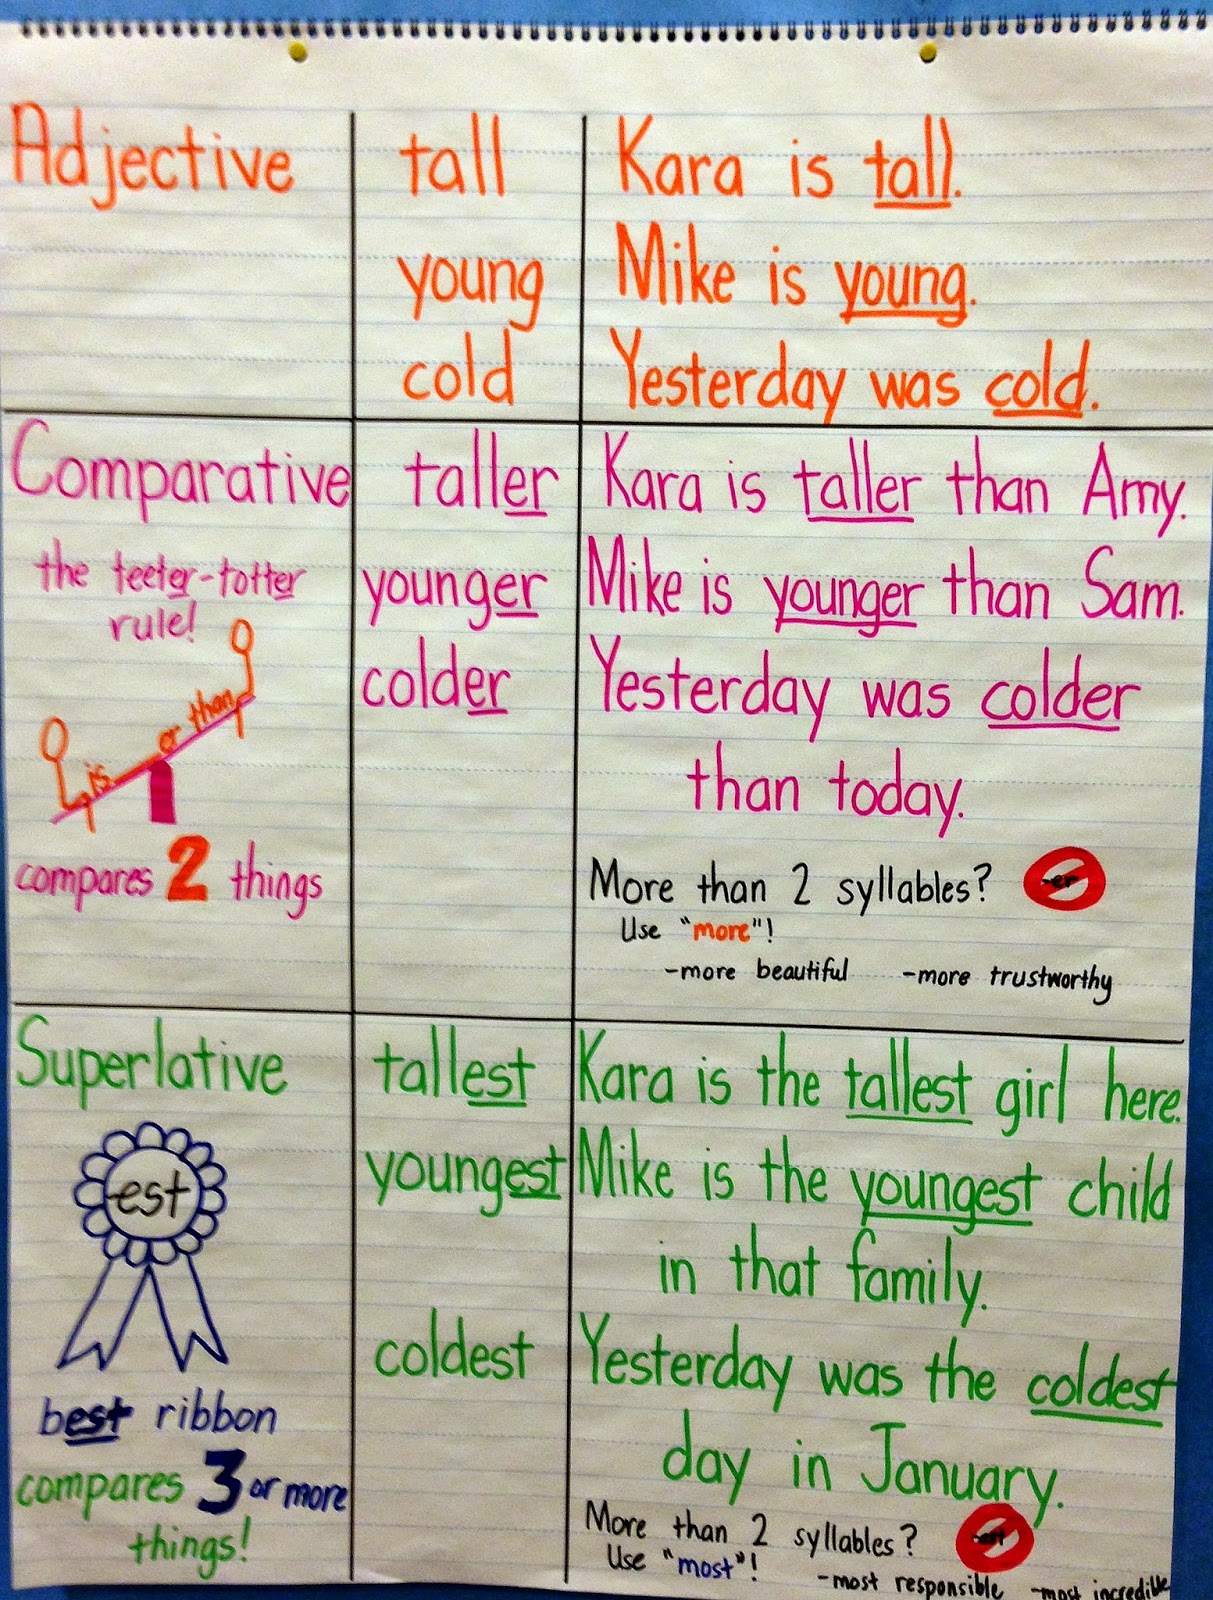 Adjective
tall
Kara is tall.
young
Mike is young.
cold
Yesterday was cold.
Comparative
the teeter-totter
rule!
is er than
compares 2 things
taller
Kara is taller than Amy.
younger
Mike is younger than Sam.
colder
Yesterday was colder
than today.
More than 2 syllables? -er
Use "more"!
-more beautiful -more trustworthy
Superlative
-est
best ribbon
compares 3 or more
things!
tallest
Kara is the tallest girl here.
youngest
Mike is the youngest child
in that family.
coldest
Yesterday was the coldest
day in January.
More than 2 syllables? -est
Use "most"!
-most responsible -most incredible